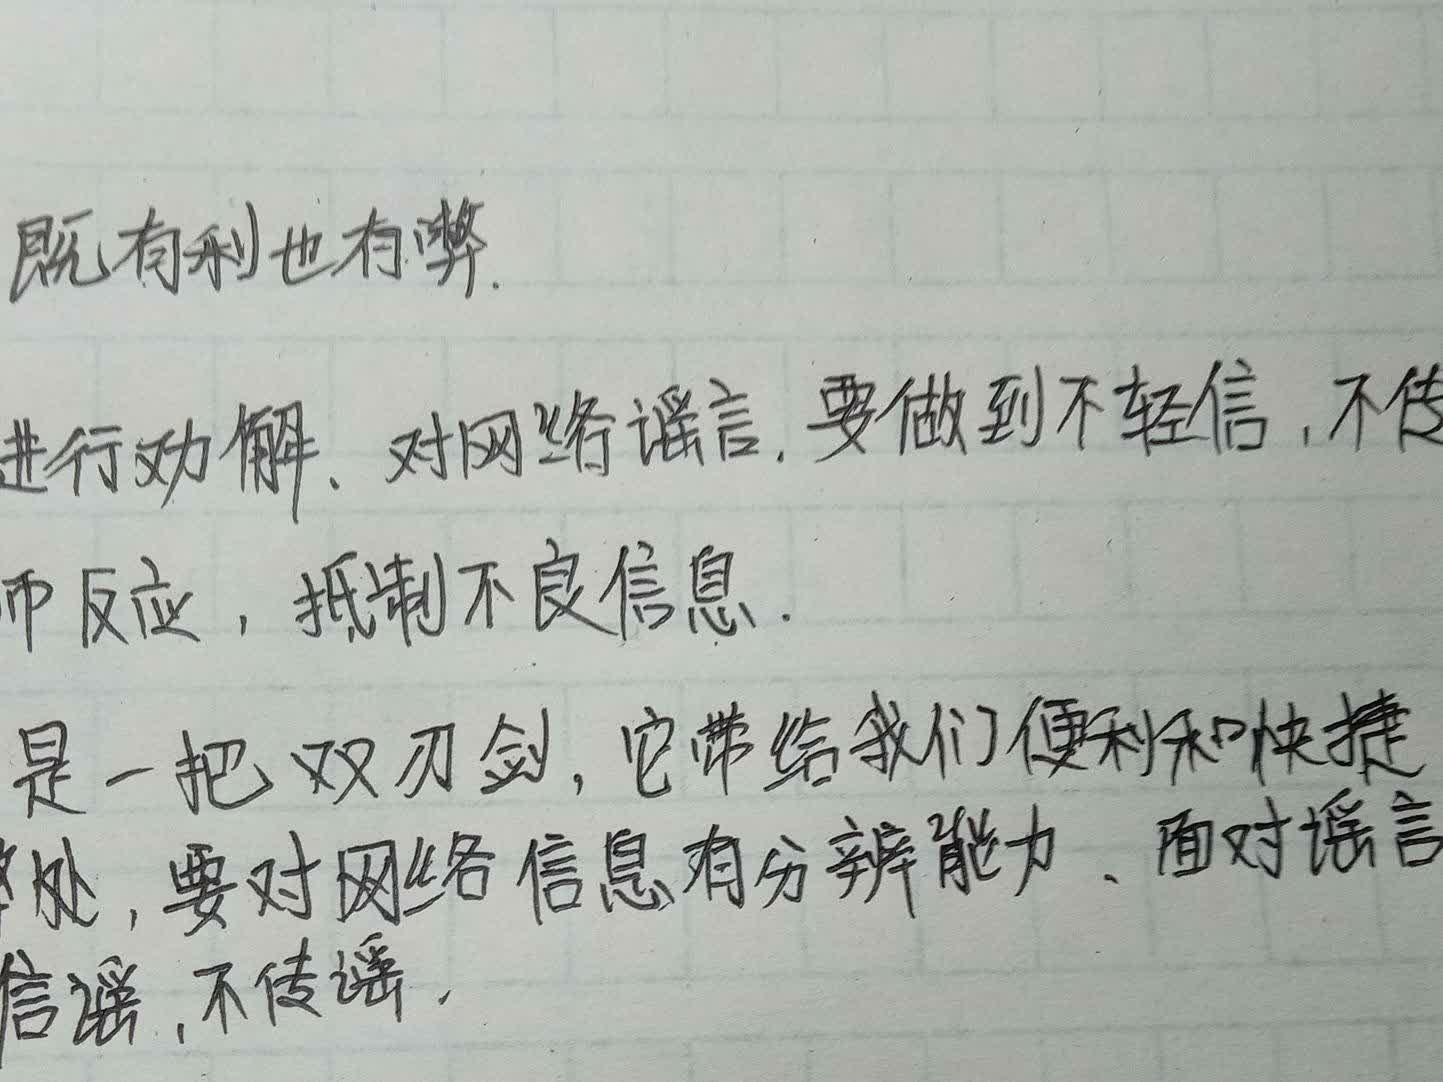 既有利也有弊.
进行劝解、对网络谣言,要做到不轻信,不传
师反应,抵制不良信息.
是一把双刃剑,它带给我们便利和快捷
处,要对网络信息有分辨能力、面对谣言
信谣,不传谣.